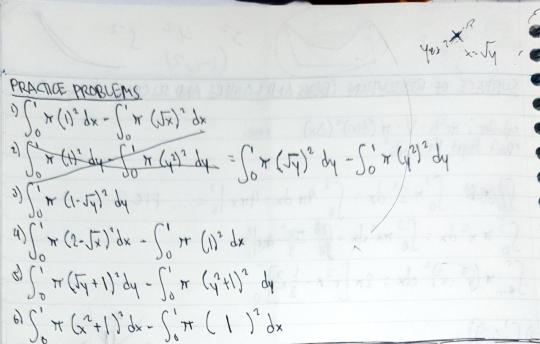 x=√y
PRACTICE PROBLEMS
1) ∫₀¹ π (1)² dx - ∫₀¹ π (√x)² dx
2) ∫₀¹ π (1)² dy - ∫₀¹ π (y²)² dy = ∫₀¹ π (√y)² dy - ∫₀¹ π (y²)² dy
3) ∫₀¹ π (1-√y)² dy
4) ∫₀¹ π (2-√x)² dx - ∫₀¹ π (1)² dx
5) ∫₀¹ π (√y+1)² dy - ∫₀¹ π (y²+1)² dy
6) ∫₀¹ π (x²+1)² dx - ∫₀¹ π ( 1 )² dx